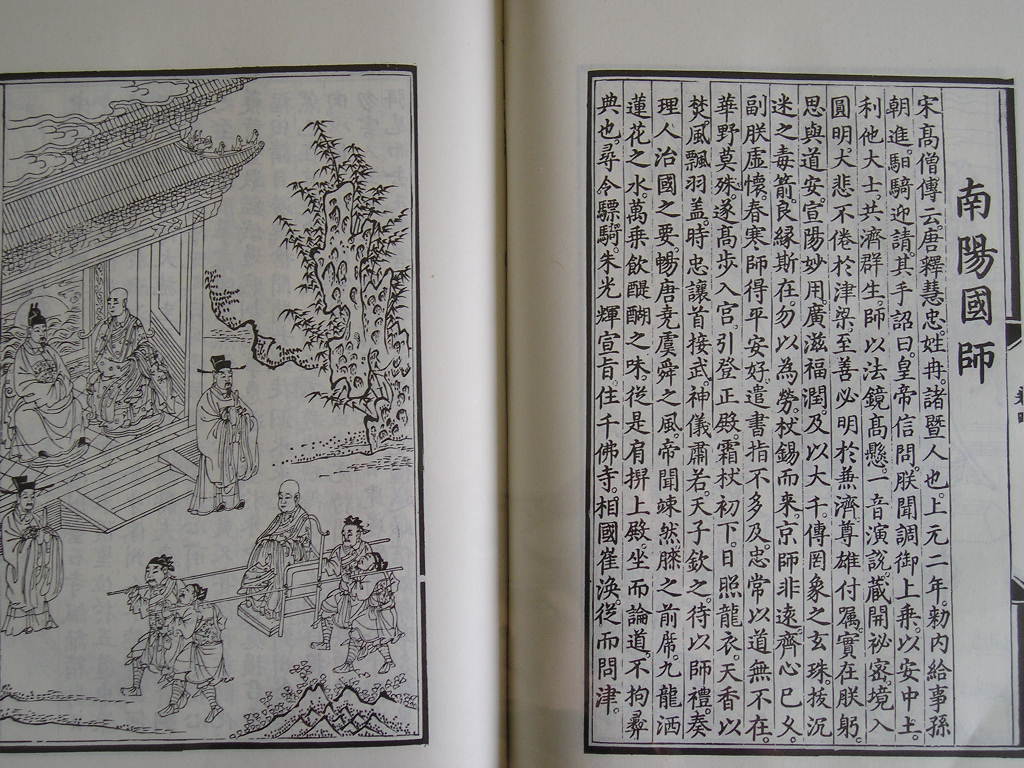 南陽國師
宋高僧傳云。唐釋慧忠。姓冉。諸暨人也。上元二年。勅內給事孫
朝進馹騎迎請。其手詔曰。皇帝信問。朕聞調御上乘。以安中土。
利他大士。共濟群生。師以法鏡高懸。一音演說。藏開祕密。境入
圓明。大悲不倦於津梁。至善必明於兼濟。尊雄付囑。實在朕躬。
思與道安。宣陽妙用。廣滋福潤。及以大千。傳罔象之玄珠。拔沉
迷之毒箭。良緣斯在。勿以為勞。杖錫而來。京師非遠。齊心已久。
副朕虛懷。春寒師得平安好。遣書指不多及。忠常以道無不在。
華野莫殊。遂高步入宮。引登正殿。霜杖初下。日照龍衣。天香以
焚。風飄羽蓋。時忠讓首接武。神儀肅若。天子欽之。待以師禮。奏
理人治國之要。暢唐堯虞舜之風。帝聞竦然。膝之前席。九龍洒
蓮花之水。萬乘飲醍醐之味。從是肩搟上殿。坐而論道。不拘彝
典也。尋令驃騎朱光輝宣旨。住千佛寺。相國崔渙。從而問津。